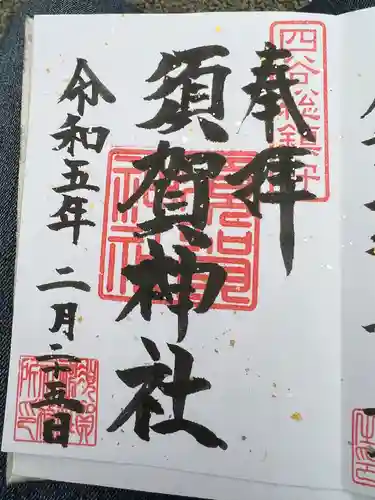 四谷総鎮守
奉拝
須賀神社
令和五年 二月二十五日